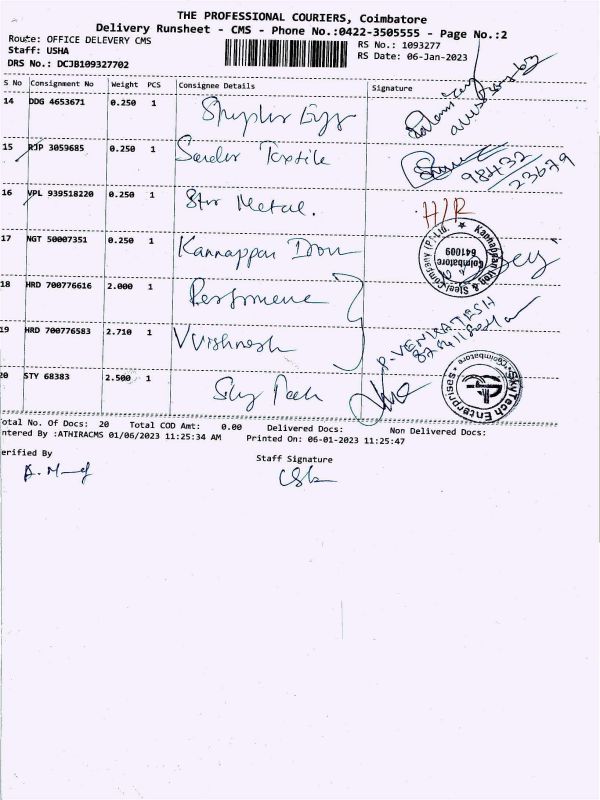 THE PROFESSIONAL COURIERS, Coimbatore
Delivery Runsheet - CMS - Phone No.:0422-3505555 - Page No.:2
Route: OFFICE DELEVERY CMS
RS No.: 1093277
Staff: USHA
RS Date: 06-Jan-2023
DRS No.: DCJB109327702
S No Consignment No Weight PCS Consignee Details Signature
14 DDG 4653671 0.250 1
15 RJP 3059685 0.250 1 Textile
98432
23679
16 VPL 939518220 0.250 1 Star Metal. H/R
17 NGT 50007351 0.250 1 Kannappan Iron
Kannappan Iron & Steel Company (P) Ltd.
Coimbatore
641009
18 HRD 700776616 2.000 1
19 HRD 700776583 2.710 1 Vvishnesh
P. VENKATESH
20 STY 68383 2.500 1 Sky Tech
SkyTech Enterprises
Coimbatore
otal No. Of Docs: 20 Total COD Amt: 0.00 Delivered Docs: Non Delivered Docs:
ntered By :ATHIRACMS 01/06/2023 11:25:34 AM Printed On: 06-01-2023 11:25:47
erified By
Staff Signature